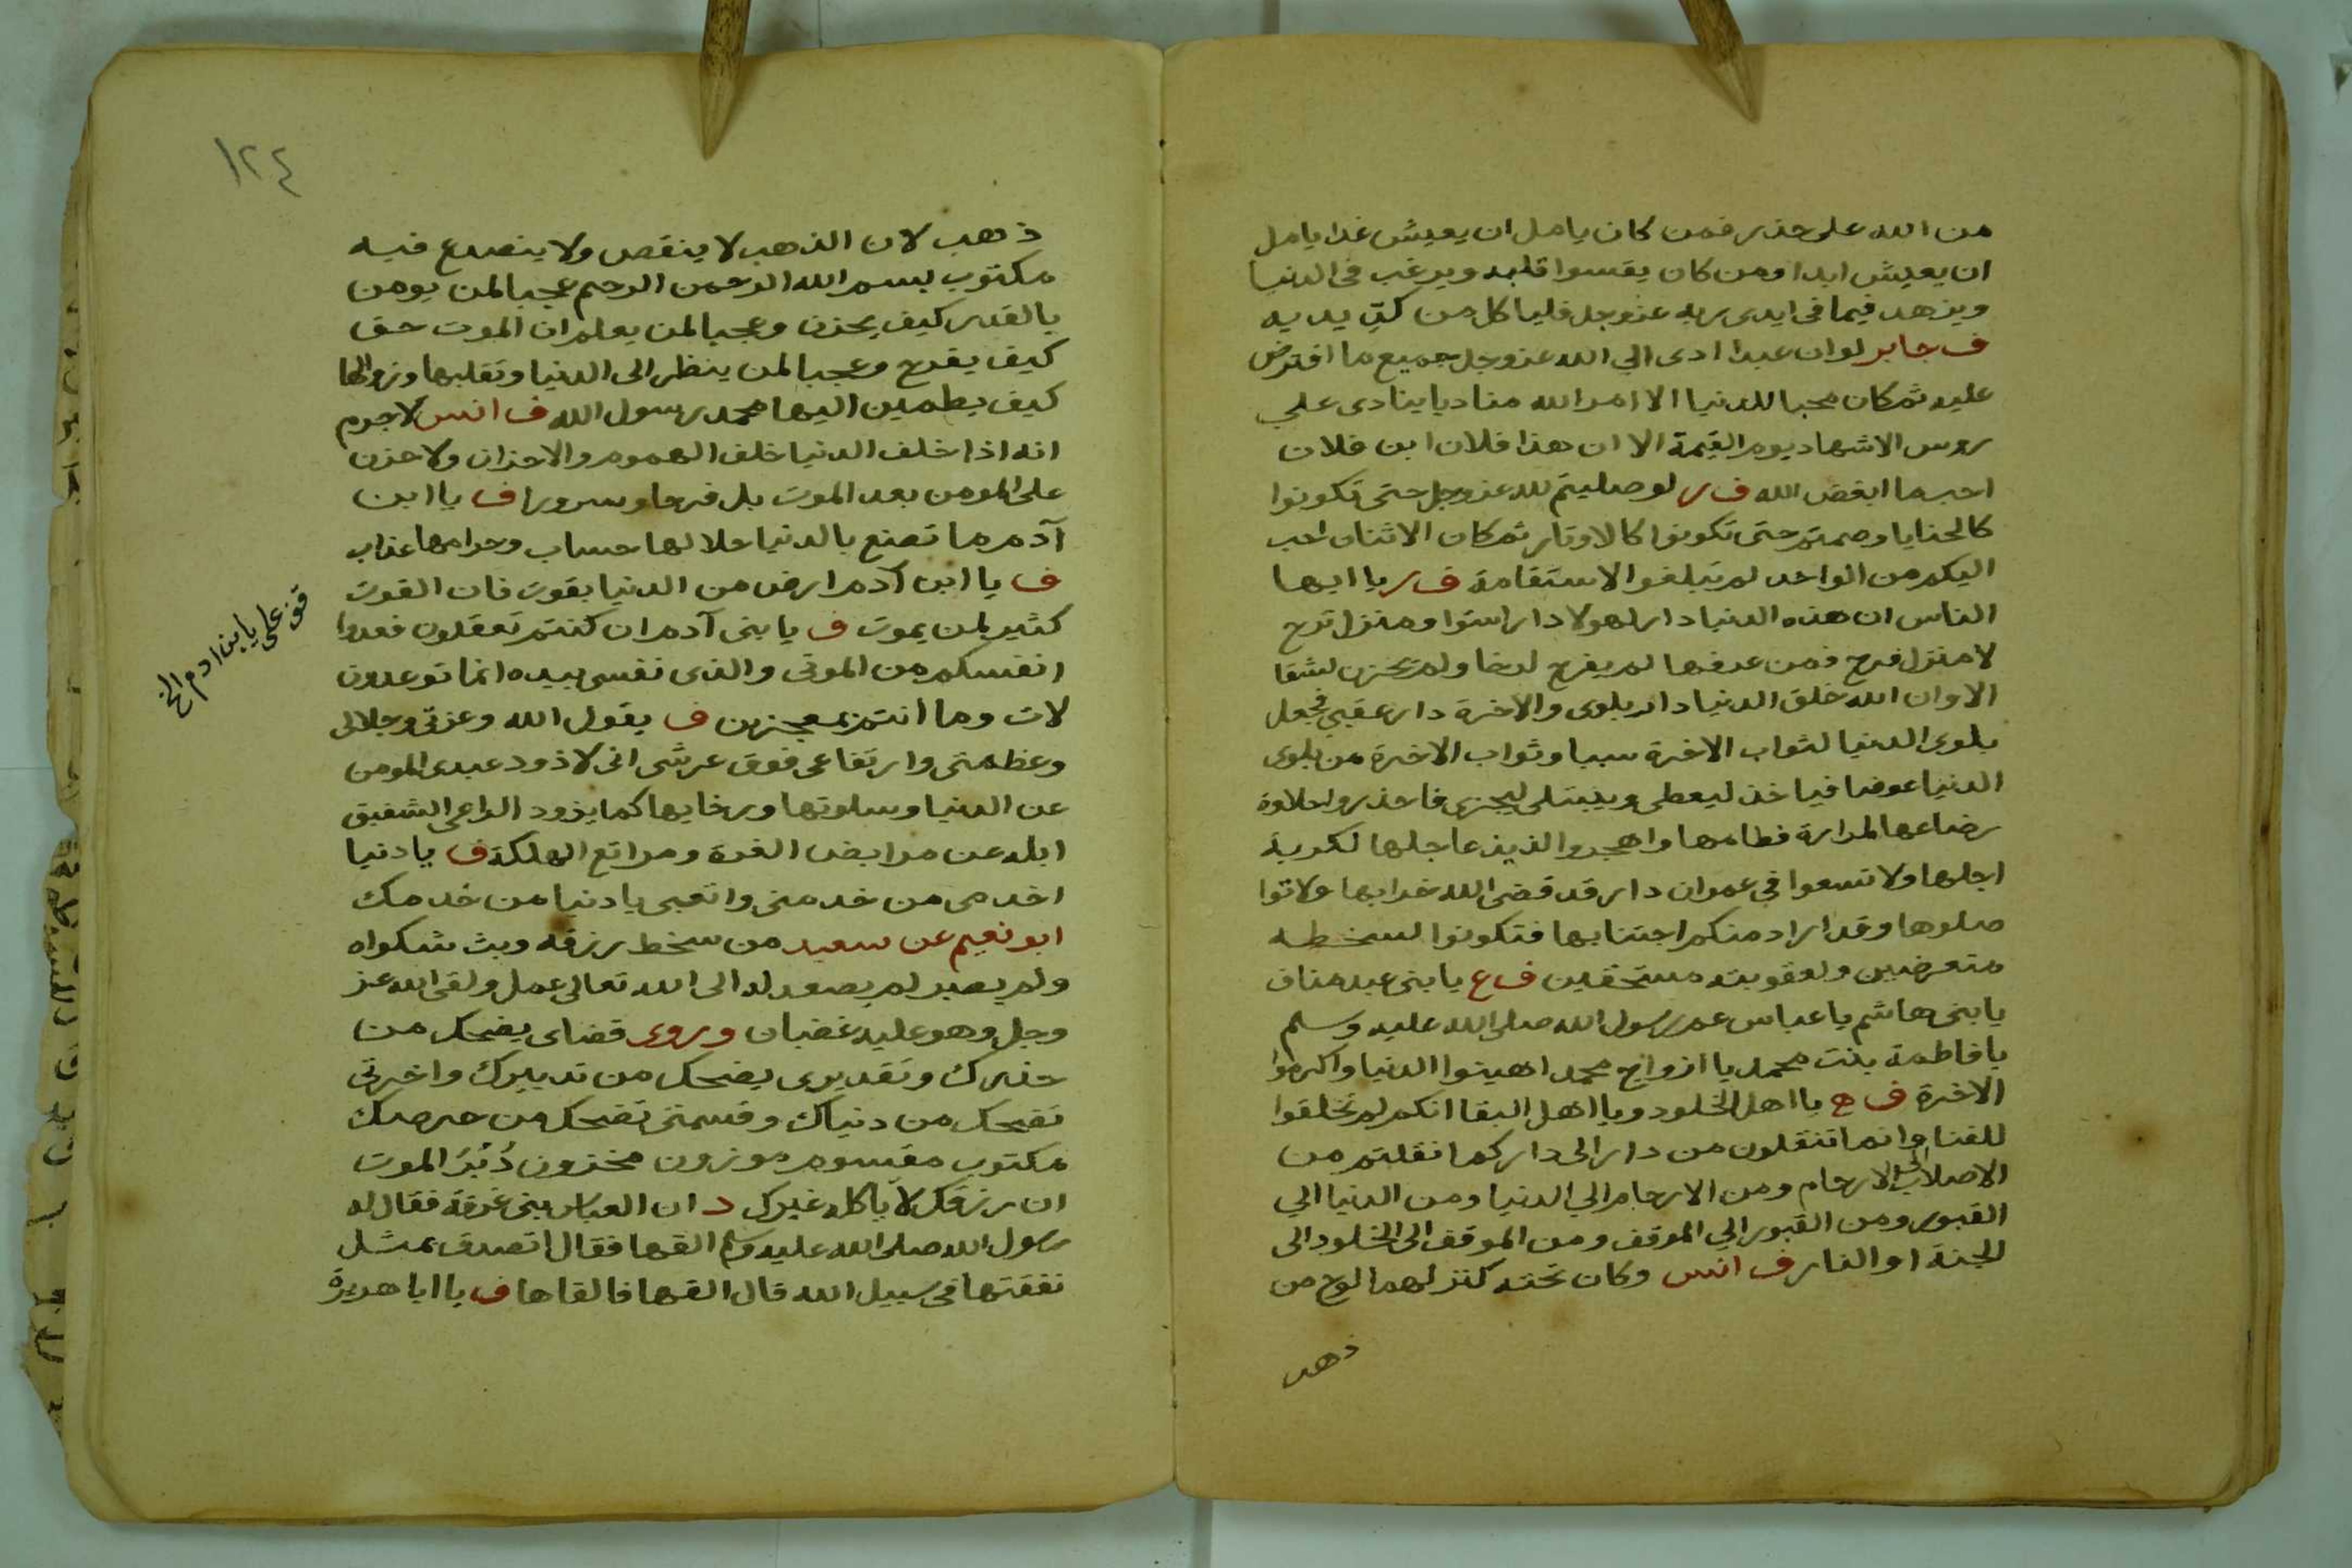 من الله على حذر فمن كان يامل ان يعيش غدا يامل
ان يعيش ابدا ومن كان يقسوا قلبه ويرغب في الدنيا
ويزهد فيما في ايدى ربه عزوجل فلياكل من كد يديه
ف جابر لوان عبدا ادى الي الله عزوجل جميع ما افترض
عليه ثم كان محبا للدنيا الا امر الله مناديا ينادى علي
روس الاشهاد يوم القيمة الا ان هذا فلان ابن فلان
احب ما ابغض الله ف ر لو صليتم لله عزوجل حتى تكونوا
كالحنايا وصمتم حتى تكونوا كالاوتار ثم كان الاثنان احب
اليكم من الواحد لم تبلغوا الاستقامة ف ر يا ايها
الناس ان هذه الدنيا دار لهو لا دار استوا ومنزل ترح
لا منزل فرح فمن عرفها لم يفرح لرخا ولم يحزن لشقا
الا وان الله خلق الدنيا دار بلوى والاخرة دار عقبي فجعل
بلوى الدنيا لثواب الاخرة سببا وثواب الاخرة من بلوى
الدنيا عوضا فياخذ ليعطى ويبتلى ليجزى فاحذروا حلاوة
رضاعها لمرارة فطامها واهجروا لذيذ عاجلها لكربة
اجلها ولا تسعوا في عمران دار قد قضى الله خرابها ولا توا
صلوها وقد اراد منكم اجتنابها فتكونوا لسخطه
متعرضين ولعقوبته مستحقين ف ع يا بنى عبد مناف
يا بنى هاشم يا عباس عم رسول الله صلى الله عليه وسلم
يا فاطمة بنت محمد يا ازواج محمد اهينوا الدنيا واكرموا
الاخرة ف ه يا اهل الخلود ويا اهل البقا انكم لم تخلقوا
للفنا وانما تنقلون من دار الى دار كما نقلتم من
الاصلاب الى الارحام ومن الارحام الي الدنيا ومن الدنيا الي
القبور ومن القبور الي الموقف ومن الموقف الى الخلود الى
الجنة او النار ف انس وكان تحته كنز لهما لوح من
ذهب
١٢٤
ذهب لان الذهب لا ينقص ولا ينصدع فيه
مكتوب بسم الله الرحمن الرحيم عجبا لمن يومن
بالقدر كيف يحزن وعجبا لمن يعلم ان الموت حق
كيف يفرح وعجبا لمن ينظر الى الدنيا وتقلبها وزوالها
كيف يطمين اليها محمد رسول الله ف انس لا جرم
انه اذا خلف الدنيا خلف الهموم والاحزان ولا حزن
على المومن بعد الموت بل فرحا وسرورا ف يا ابن
آدم ما تصنع بالدنيا حلالها حساب وحرامها عذاب
ف يا ابن آدم ارض من الدنيا بقوت فان القوت
كثير لمن يموت ف يا بنى آدم ان كنتم تعقلون فعدوا
انفسكم من الموتى والذى نفسى بيده انما توعدون
لات وما انتم بمعجزين ف يقول الله وعزتى وجلالى
وعظمتى وارتفاعى فوق عرشى انى لاذود عبدى المومن
عن الدنيا وسلوتها ورخايها كما يذود الراعى الشفيق
ابله عن مرابض الغرة ومراتع الهلكة ف يا دنيا
اخدمى من خدمنى واتعبى يا دنيا من خدمك
ابو نعيم عن سعيد من سخط رزقه وبث شكواه
ولم يصبر لم يصعد له الى الله تعالى عمل ولقى الله عز
وجل وهو عليه غضبان وروى قضاى يضحك من
حذرك وتقديرى يضحك من تدبيرك واخرتى
تضحك من دنياك وقسمتى تضحك من حرصك
مكتوب مقسوم موزون مخزون الموت
ان رزقك لا ياكله غيرك د ان العباس بنى غرفة فقال له
رسول الله صلى الله عليه وسلم القها فقال اتصدق بمثل
نفقتها فى سبيل الله قال القها فالقاها ف يا ابا هريرة
قف على يا بن ادم الخ